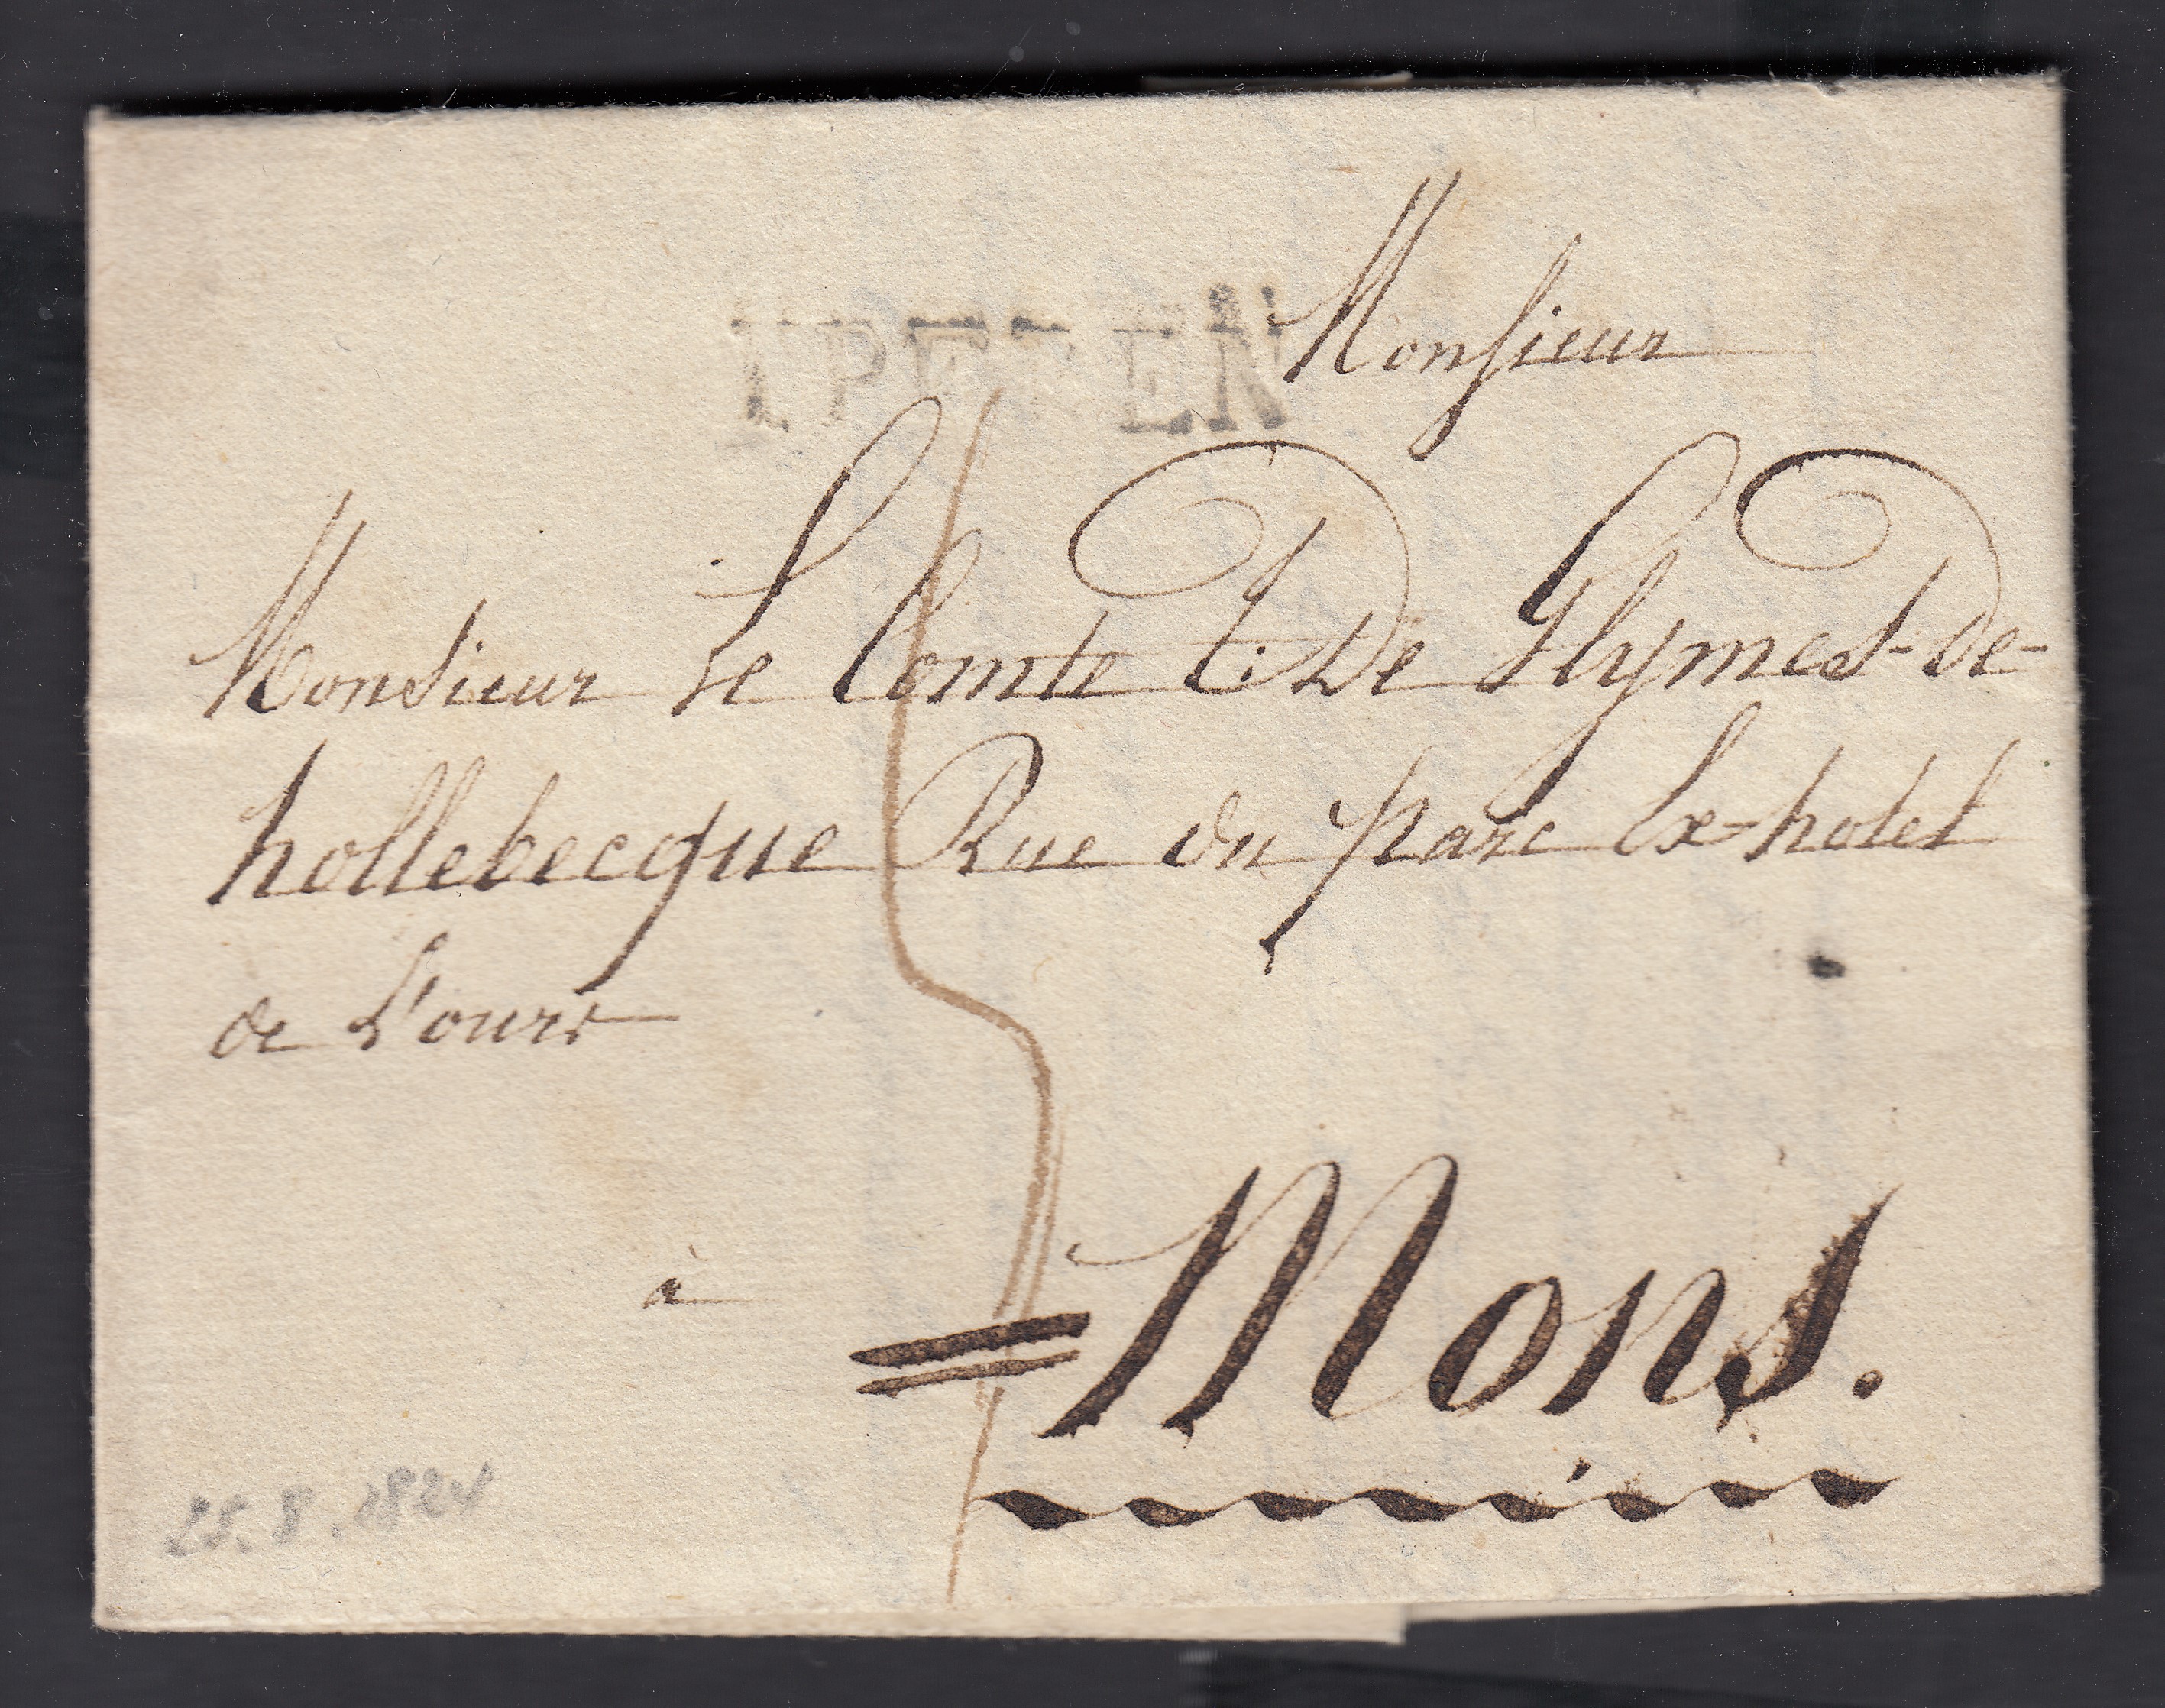 IPEREN
Monsieur
Monsieur Le Comte C: De Glymes-De-
hollebecque Rue du parc Ex-hotel
de L'ours
à
=Mons.
25.8.1824